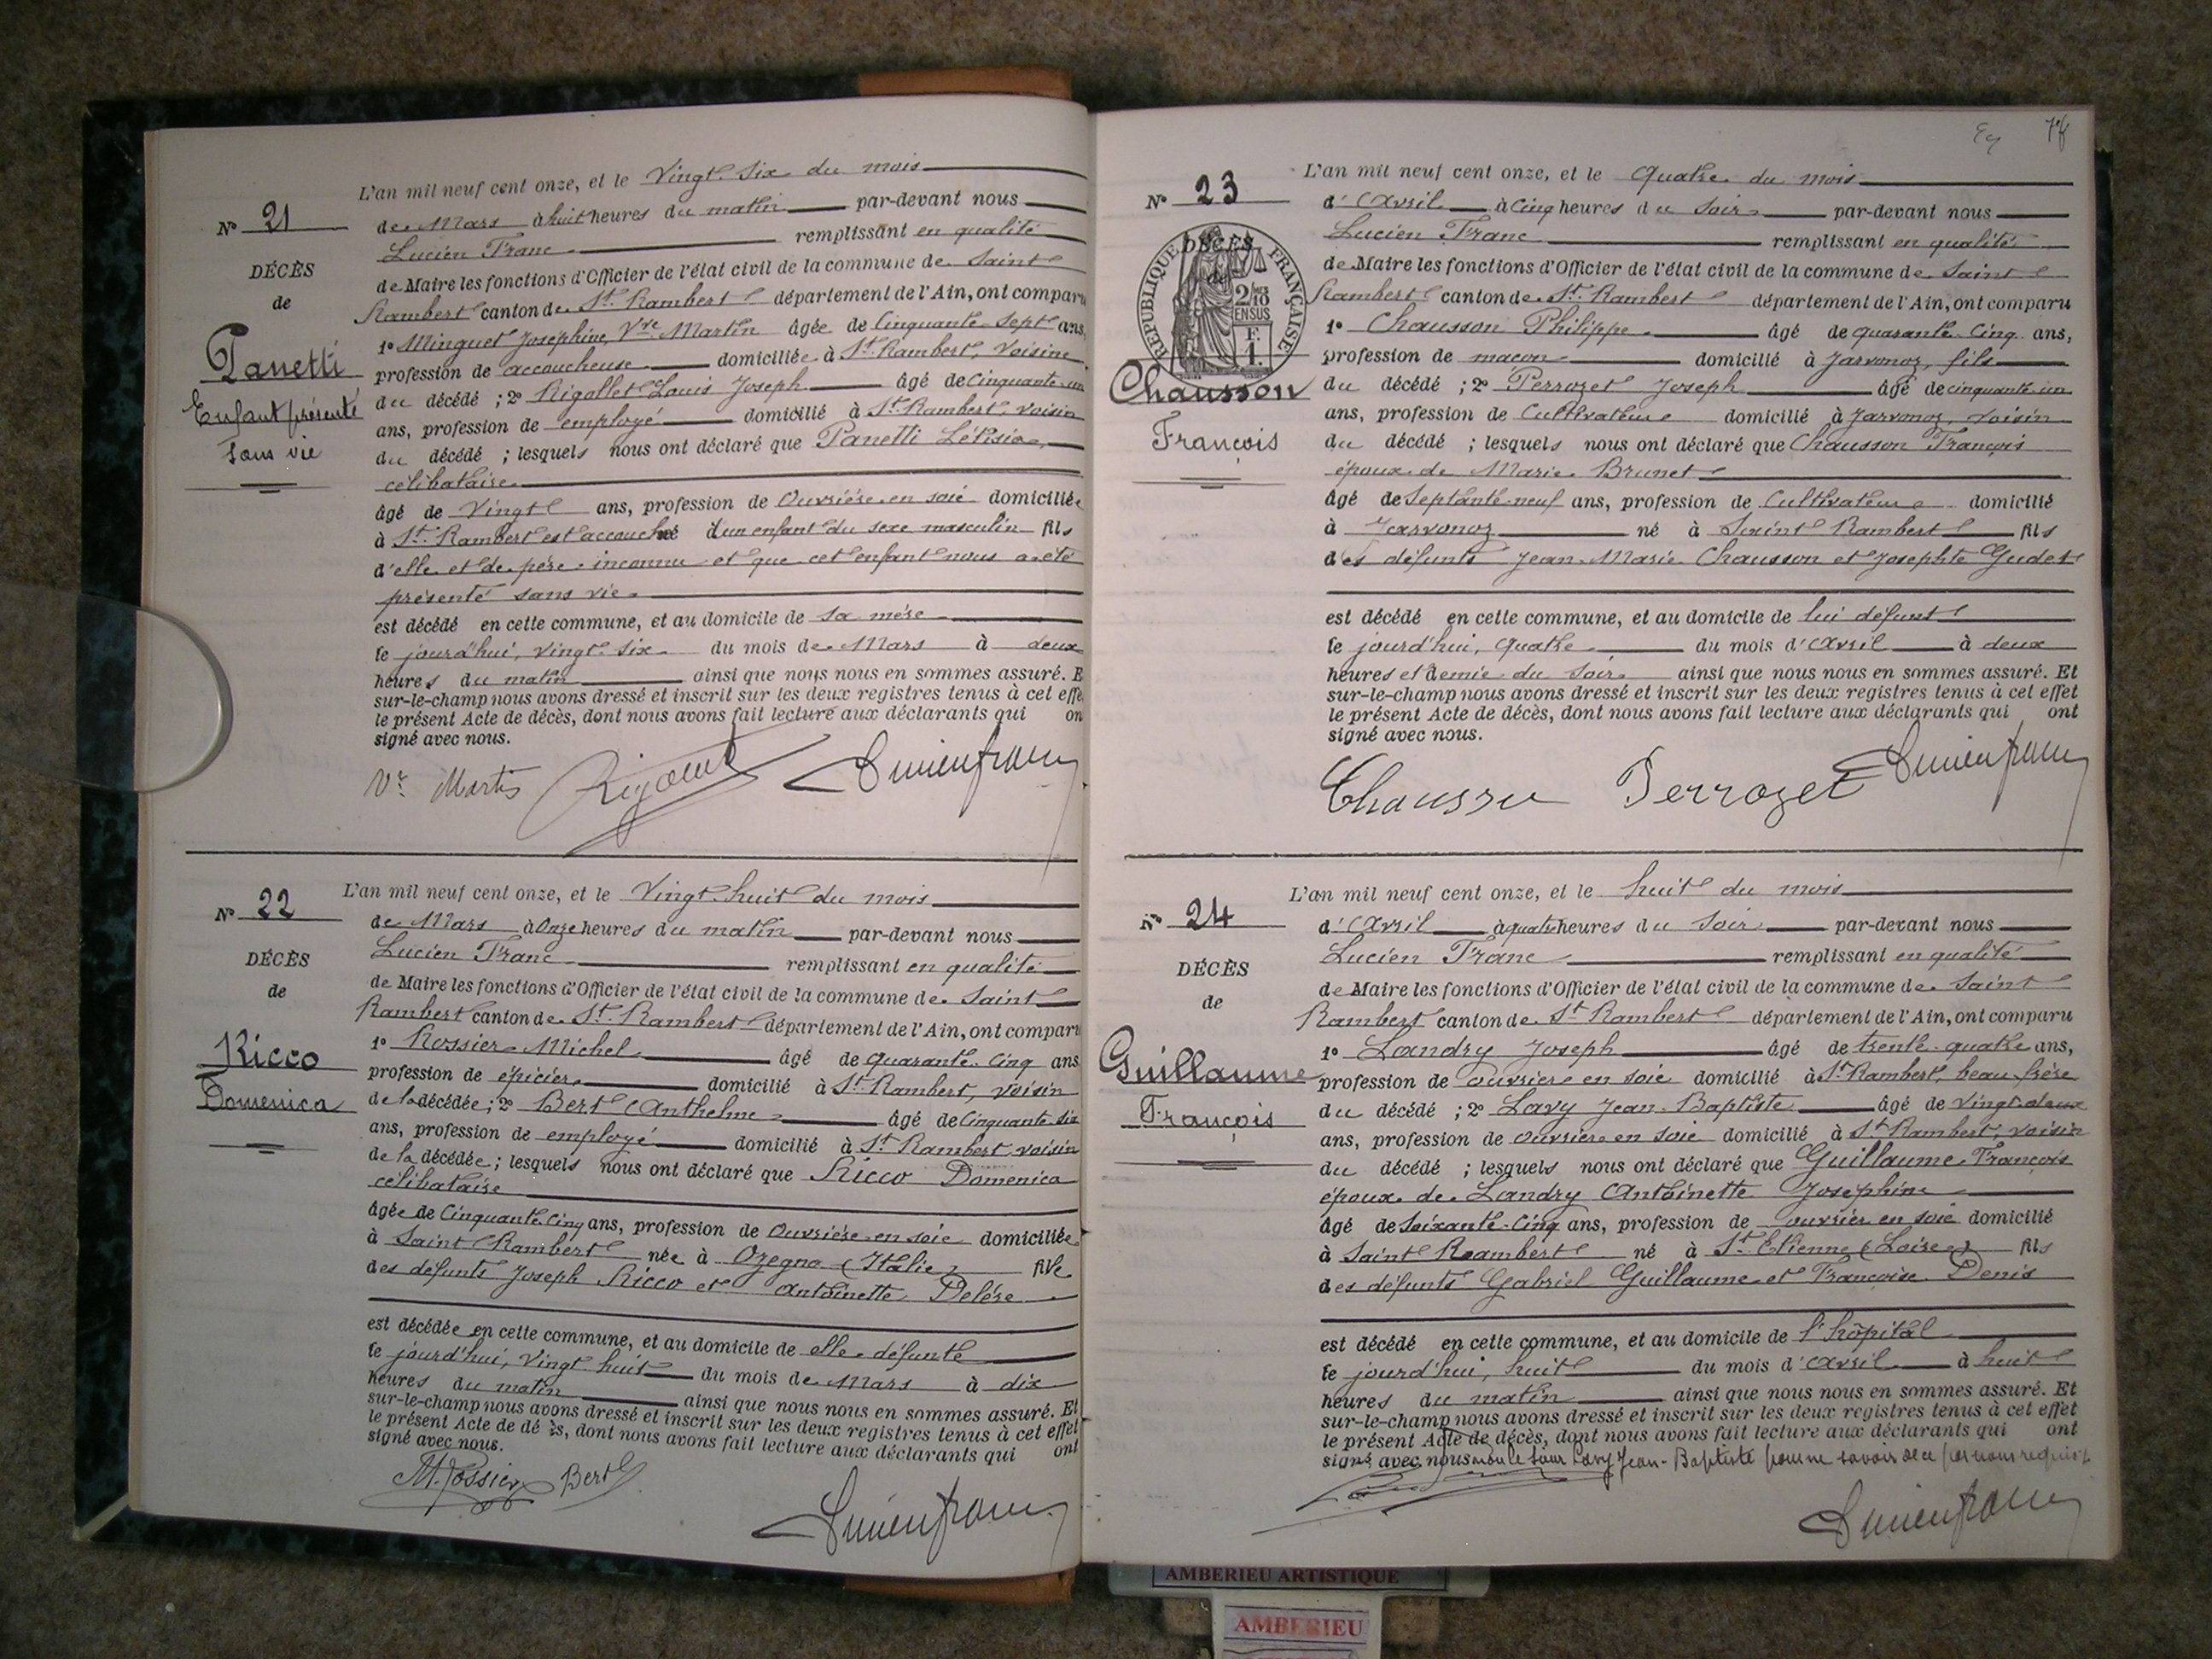 N° 21
DÉCÈS
de
Panetti
Enfant présenté
sans vie
L'an mil neuf cent onze, et le Vingt-six du mois
de Mars à huit heures du matin par-devant nous
Lucien Franc remplissant en qualité
de Maire les fonctions d'Officier de l'état civil de la commune de Saint
Rambert canton de St. Rambert département de l'Ain, ont comparu
1° Minguet Joséphine, Vve Martin âgée de Cinquante-sept ans,
profession de accoucheuse domiciliée à St. Rambert, voisine
du décédé ; 2° Rigollet Louis Joseph âgé de Cinquante-un
ans, profession de employé domicilié à St. Rambert, voisin
du décédé ; lesquels nous ont déclaré que Panetti Létisia,
célibataire
âgé de Vingt ans, profession de Ouvrière en soie domiciliée
à St. Rambert est accouché d'un enfant du sexe masculin fils
d'elle et de père inconnu et que cet enfant nous a été
présenté sans vie
est décédé en cette commune, et au domicile de sa mère
le jourd'hui, vingt-six du mois de Mars à deux
heures du matin ainsi que nous nous en sommes assuré. E
sur-le-champ nous avons dressé et inscrit sur les deux registres tenus à cet effe
le présent Acte de décès, dont nous avons fait lecture aux déclarants qui on
signé avec nous.
Ve Martin Lucien franc
N° 22
DÉCÈS
de
Ricco
Domenica
L'an mil neuf cent onze, et le Vingt-huit du mois
de Mars à Onze heures du matin par-devant nous
Lucien Franc remplissant en qualité
de Maire les fonctions d'Officier de l'état civil de la commune de Saint
Rambert canton de St. Rambert département de l'Ain, ont comparu
1° Rossier Michel âgé de quarante-cinq ans
profession de épicier domicilié à St. Rambert, voisin
de la décédée ; 2° Bert Anthelme âgé de Cinquante-six
ans, profession de employé domicilié à St. Rambert, voisin
de la décédée ; lesquels nous ont déclaré que Ricco Domenica
célibataire
âgée de Cinquante-cinq ans, profession de Ouvrière en soie domiciliée
à Saint Rambert née à Ozegna (Italie) fille
des défunts Joseph Ricco et Antoinette Delére
est décédée en cette commune, et au domicile de elle défunte
le jourd'hui, vingt-huit du mois de Mars à dix
heures du matin ainsi que nous nous en sommes assuré. Et
sur-le-champ nous avons dressé et inscrit sur les deux registres tenus à cet effet
le présent Acte de dé ès, dont nous avons fait lecture aux déclarants qui ont
signé avec nous.
M. Rossier Bert
Lucien franc
N° 23
RÉPUBLIQUE FRANÇAISE
DÉCÈS
de
2/10
EN SUS
F.
1.
Chausson
François
L'an mil neuf cent onze, et le Quatre du mois
d'Avril à Cinq heures du soir par-devant nous
Lucien Franc remplissant en qualité
de Maire les fonctions d'Officier de l'état civil de la commune de Saint
Rambert canton de St. Rambert département de l'Ain, ont comparu
1° Chausson Philippe âgé de quarante-cinq ans,
profession de maçon domicilié à Jarvonoz, fils
du décédé ; 2° Perrozet Joseph âgé de cinquante-un
ans, profession de Cultivateur domicilié à Jarvonoz, voisin
du décédé ; lesquels nous ont déclaré que Chausson François
époux de Marie Brunet
âgé de Septante-neuf ans, profession de Cultivateur domicilié
à Jarvonoz né à Saint Rambert fils
des défunts Jean-Marie Chausson et Josephte Gudet
est décédé en cette commune, et au domicile de lui défunt
le jourd'hui, quatre du mois d'Avril à deux
heures et demie du soir ainsi que nous nous en sommes assuré. Et
sur-le-champ nous avons dressé et inscrit sur les deux registres tenus à cet effet
le présent Acte de décès, dont nous avons fait lecture aux déclarants qui ont
signé avec nous.
Perrozet Lucien franc
N° 24
DÉCÈS
de
Guillaume
François
L'an mil neuf cent onze, et le huit du mois
d'Avril à quatre heures du soir par-devant nous
Lucien Franc remplissant en qualité
de Maire les fonctions d'Officier de l'état civil de la commune de Saint
Rambert canton de St Rambert département de l'Ain, ont comparu
1° Landry Joseph âgé de trente-quatre ans,
profession de ouvrier en soie domicilié à St Rambert, beau-frère
du décédé ; 2° Lavy Jean-Baptiste âgé de vingt-deux
ans, profession de ouvrier en soie domicilié à St Rambert, voisin
du décédé ; lesquels nous ont déclaré que Guillaume François
époux de Landry Antoinette Joséphine
âgé de Soixante-cinq ans, profession de ouvrier en soie domicilié
à Saint Rambert né à St. Etienne (Loire) fils
des défunts Gabriel Guillaume et Françoise Denis
est décédé en cette commune, et au domicile de l'hôpital
le jourd'hui, huit du mois d'Avril à huit
heures du matin ainsi que nous nous en sommes assuré. Et
sur-le-champ nous avons dressé et inscrit sur les deux registres tenus à cet effet
le présent Acte de décès, dont nous avons fait lecture aux déclarants qui ont
signé avec nous non le sieur Lavy Jean-Baptiste pour ne savoir de ce par nous requis
Lucien franc
AMBERIEU ARTISTIQUE
AMBERIEU